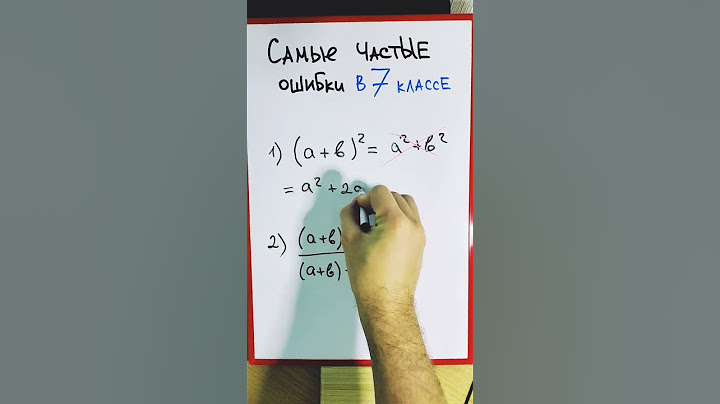 Самые частые
ошибки в 7 классе
1) (a+b)² = a² + b²
= a² + 2a
2) (a+b)
(a+b)